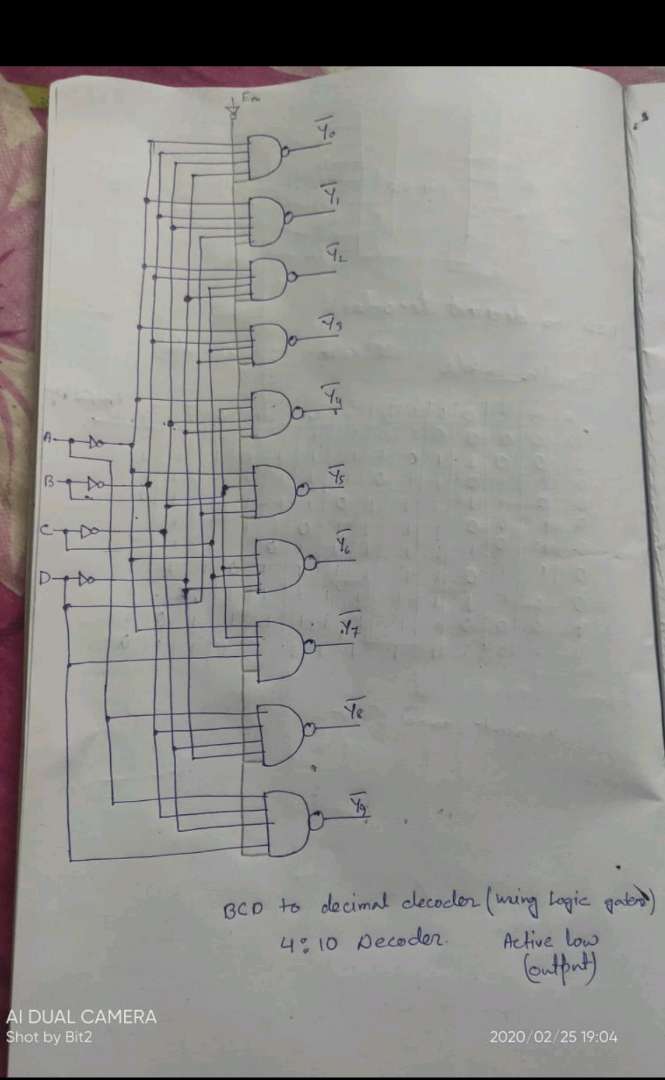 En
Y0
Y1
Y2
Y3
Y4
A
B
Y5
C
Y6
D
Y7
Y8
Y9
BCD to decimal decoder (using Logic gates)
4:10 Decoder. Active low
(output)
AI DUAL CAMERA
Shot by Bit2
2020/02/25 19:04